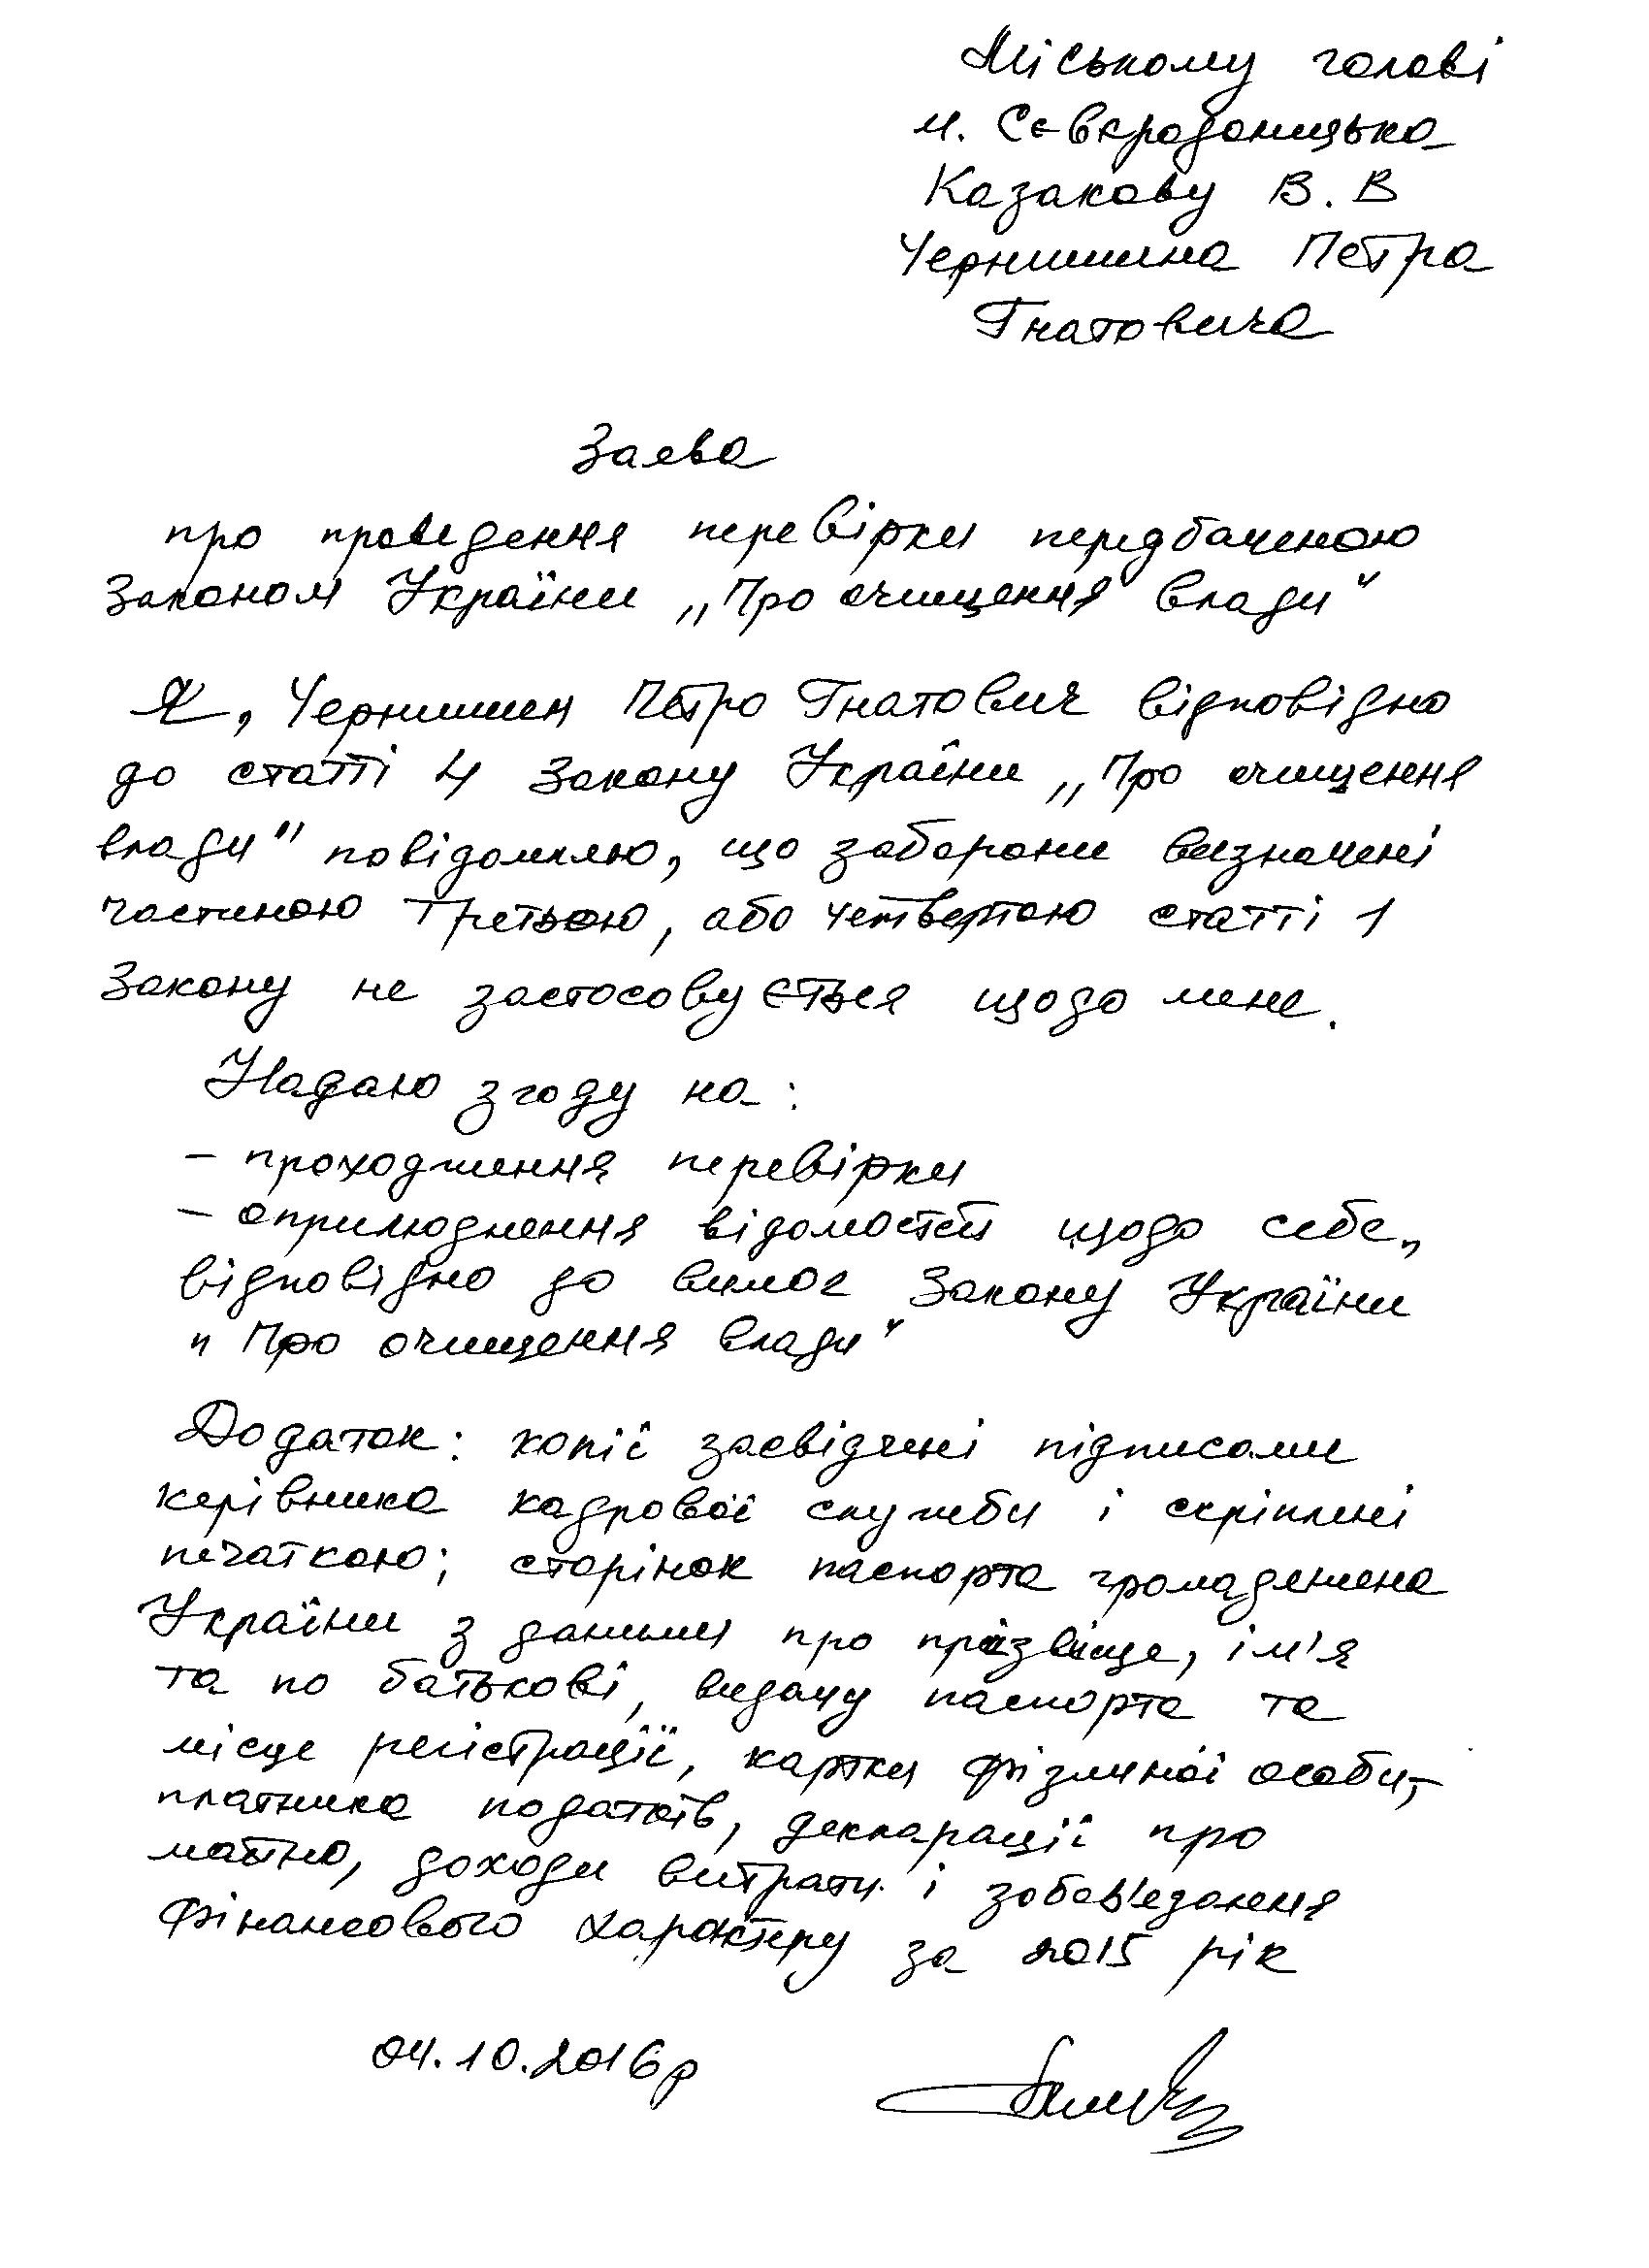 Міському голові
м. Сєвєродоницька
Казакову В. В
Чернишина Петра
Гнатовича
Заява
про проведення перевірки передбаченою
Законом України „Про очищення влади"
Я, Чернишин Петро Гнатович відповідно
до статті 4 Закону України „Про очищення
влади" повідомляю, що заборони визначені
частиною третьою, або четвертою статті 1
Закону не застосовується щодо мене.
Надаю згоду на:
– проходження перевірки
– оприлюднення відомостей щодо себе,
відповідно до вимог Закону України
"Про очищення влади"
Додаток: копії засвідчені підписами
керівника кадрової служби і скріплені
печаткою; сторінок паспорта громадянина
України з даними про прізвище, ім'я
та по батькові, видачу паспорта та
місце регістрації, картки фізичної особи,-
платника податків, декларації про
майно, доходи витрати і зобов'язання
фінансового характеру за 2015 рік
04.10.2016р